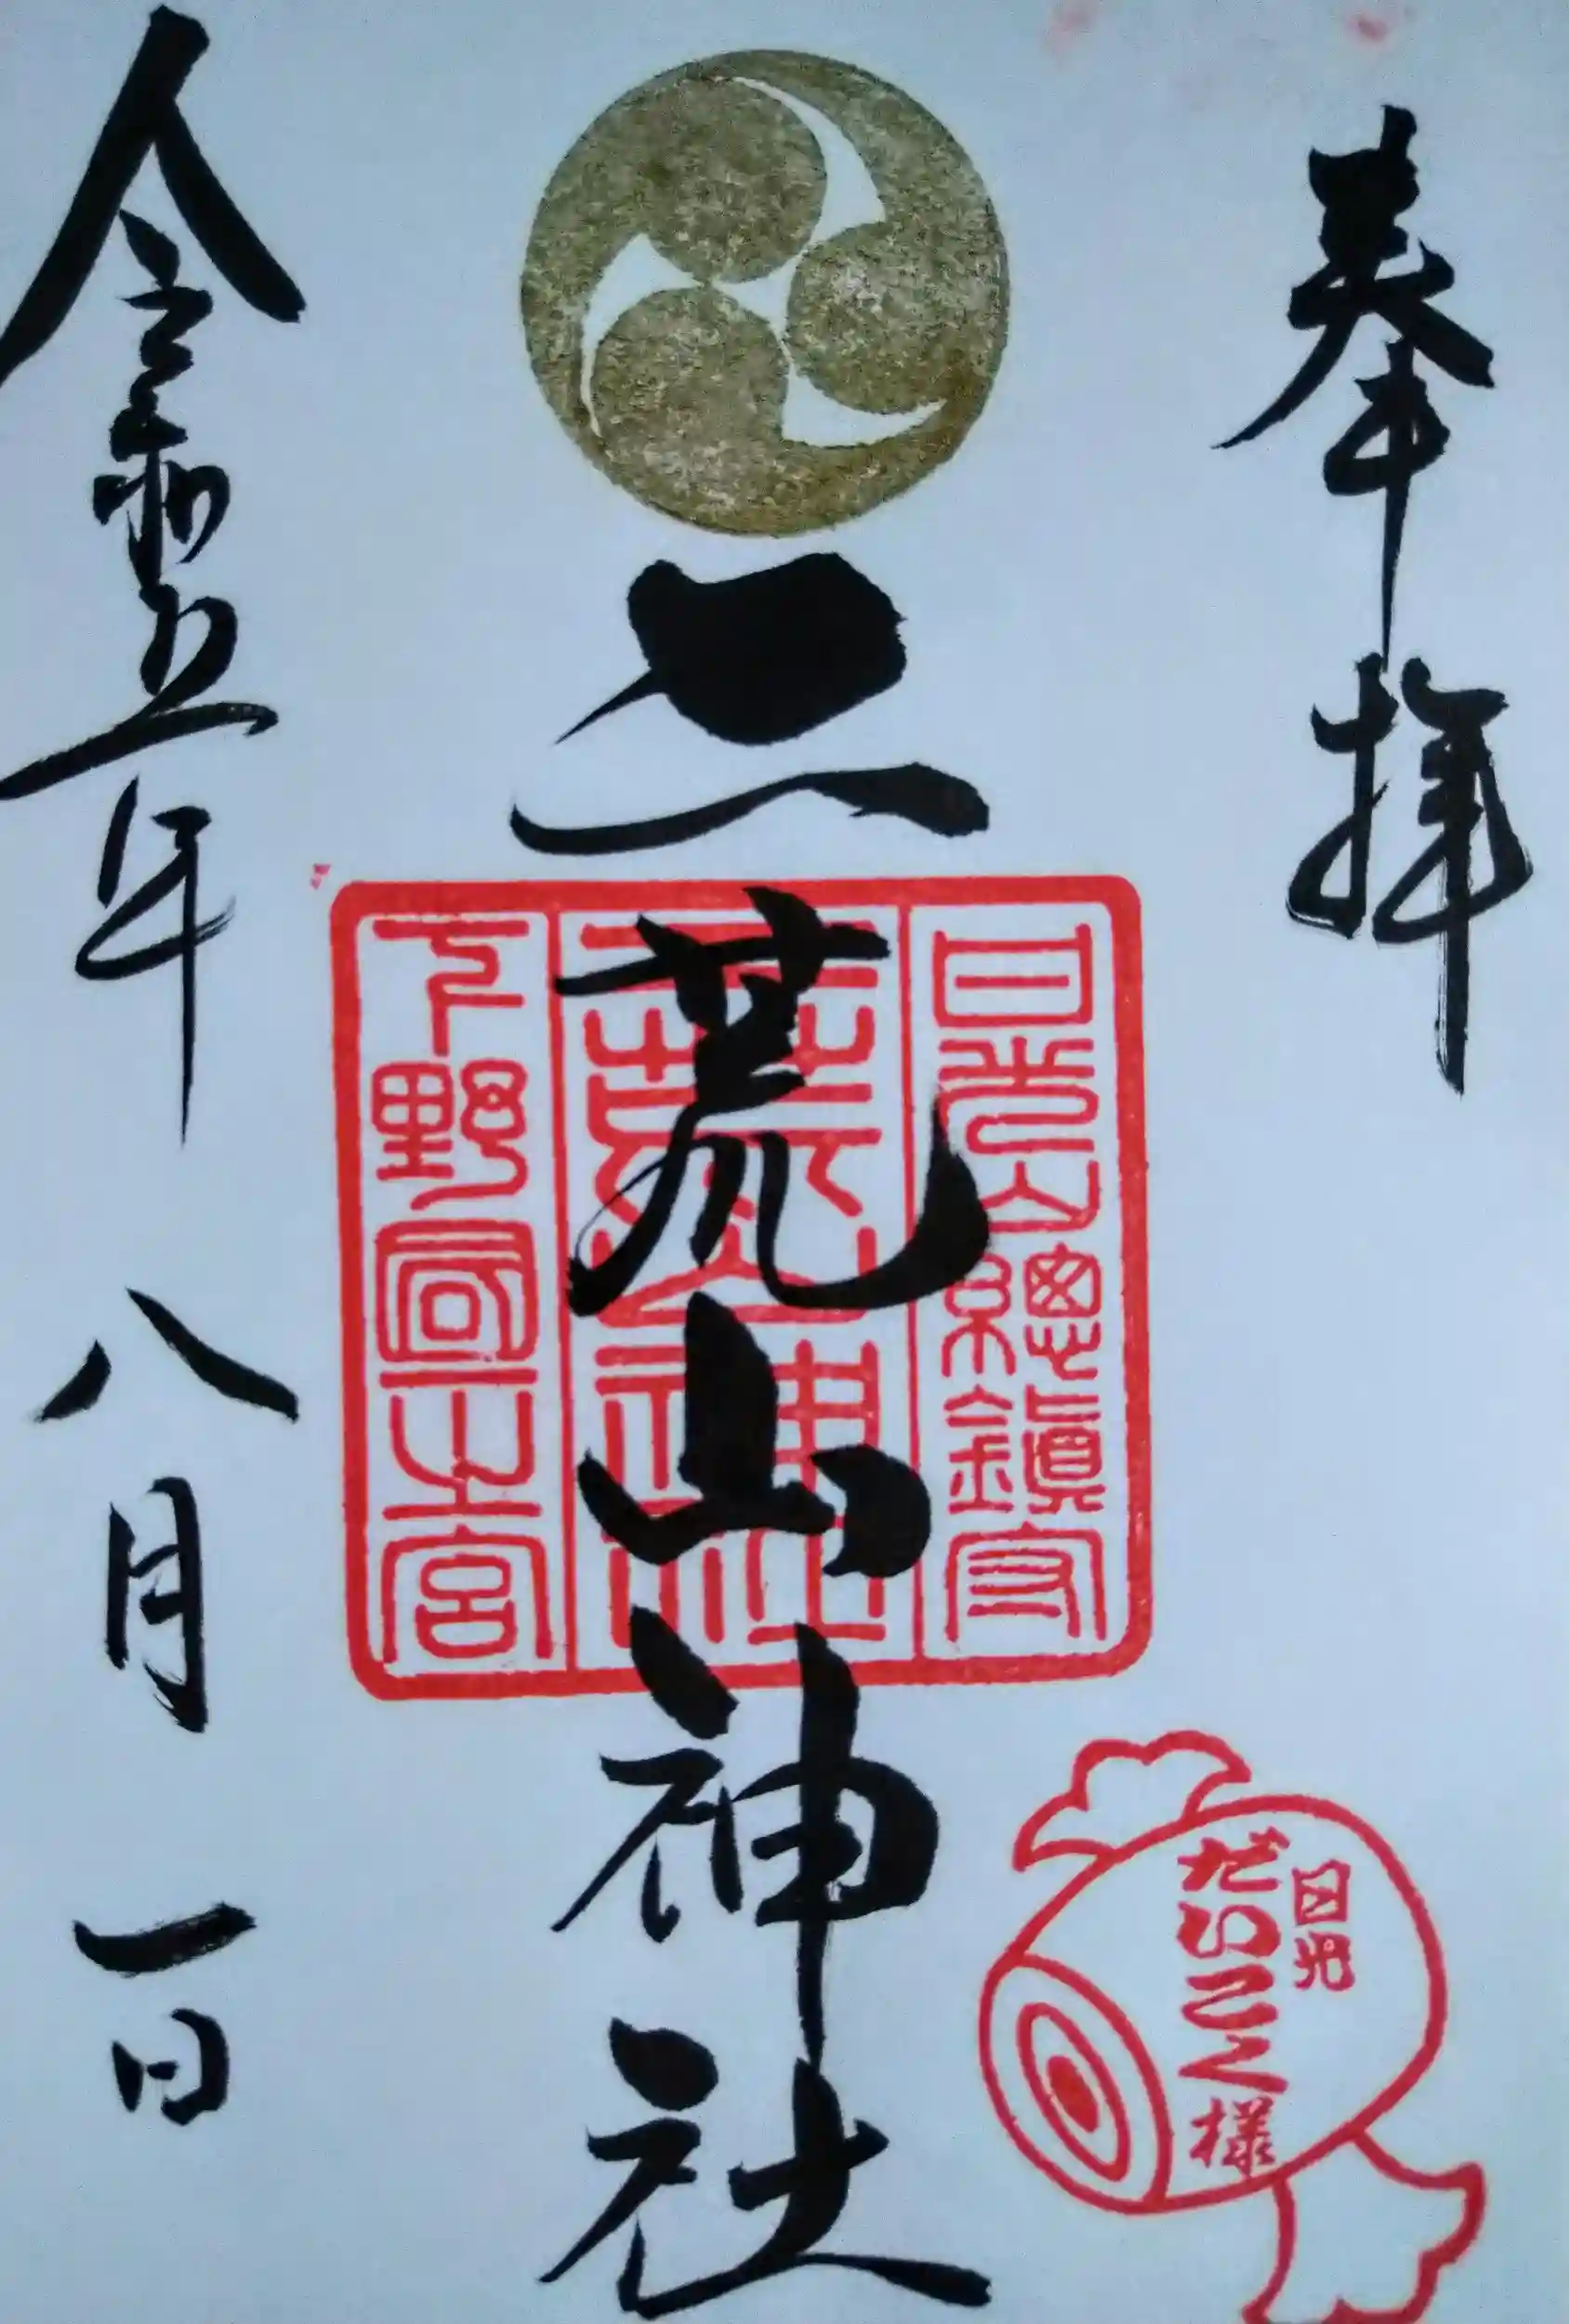 奉拝
日光山總鎮守
二荒山神社
二荒山神社
下野国一之宮
令和五年八月一日
日光
だいこく様